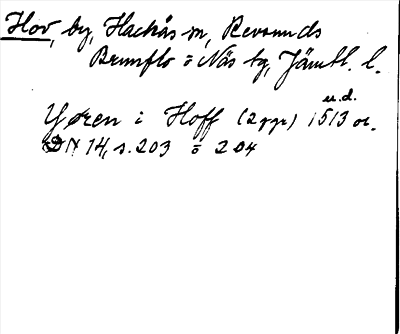 Hov, by, Hackås sn, Revsunds
Brunflo o Näs tg, Jämtl. l.
u.d.
Yøren i Hoff (2 ggr) 1513 or.
DN 14, s. 203 o 204